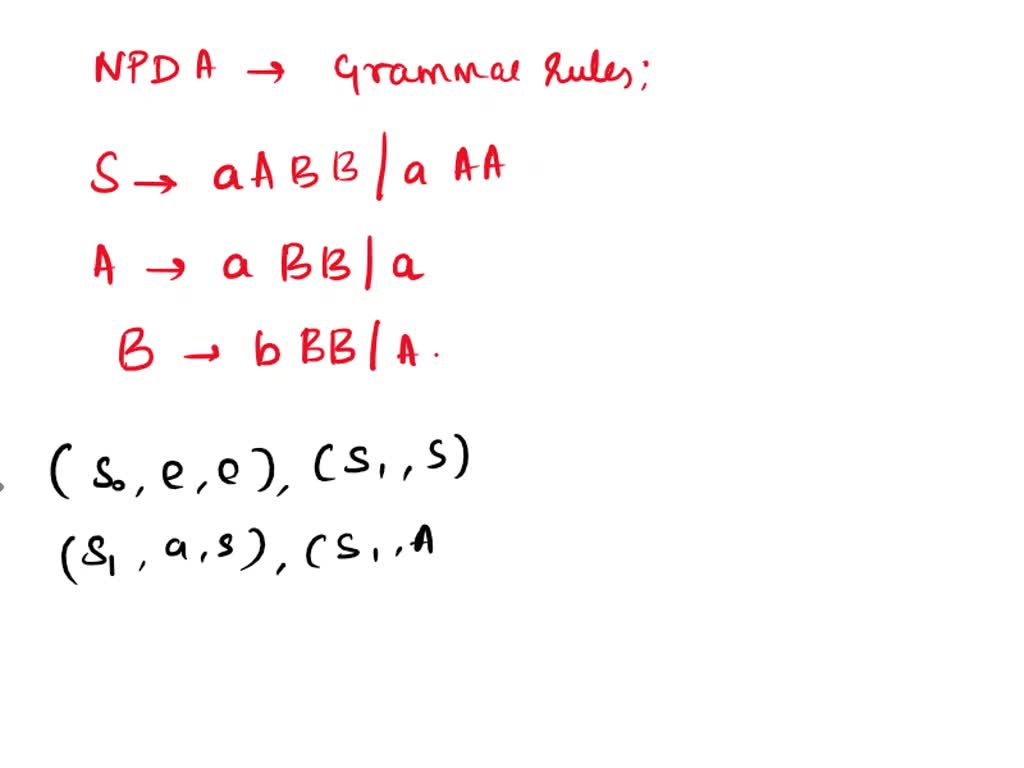 NPDA → Grammar Rules;
S → aABB | aAA
A → a BB | a
B → b BB | A.
(S₀, e, e), (S₁, S)
(S₁, a, s), (S₁, A